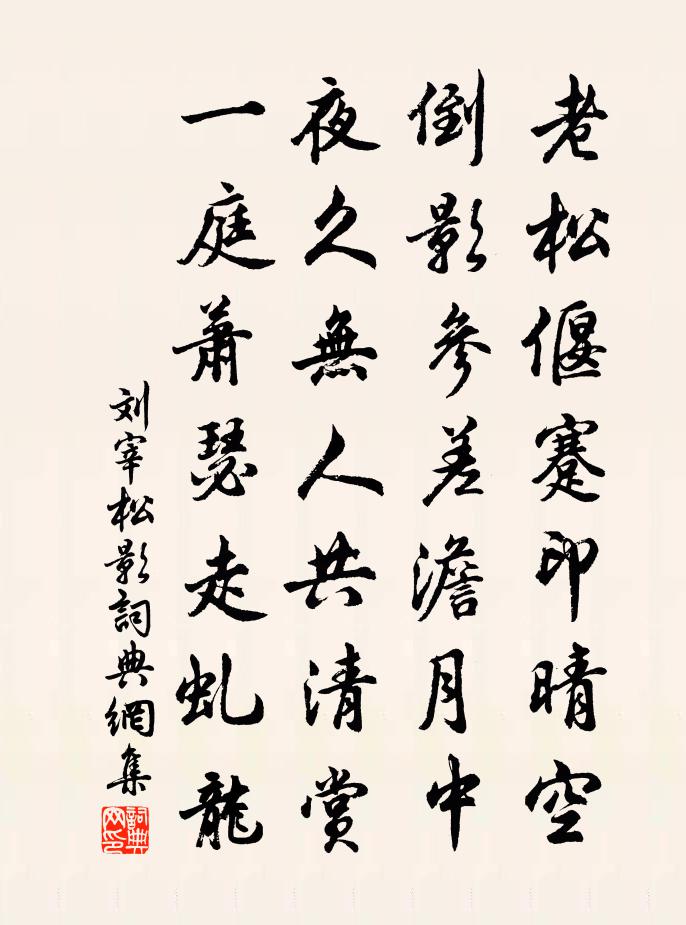 老松偃蹇印晴空
倒影參差澹月中
夜久無人共清賞
一庭蕭瑟走虬龍
刘宰松影詞典網集
詞典網印